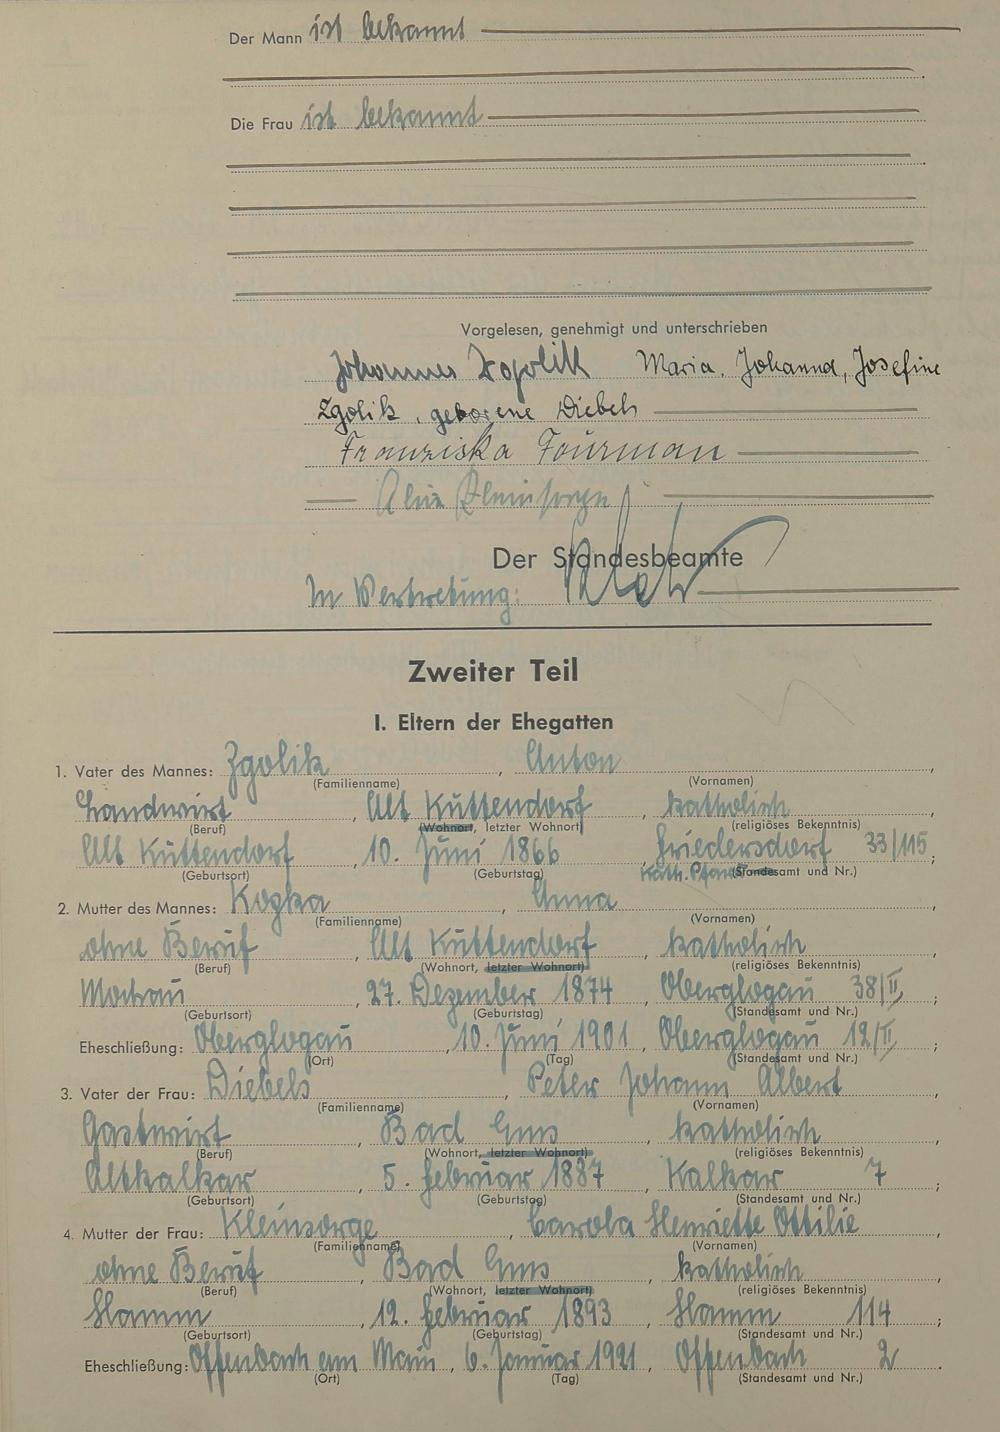 Der Mann ist bekannt
Die Frau ist bekannt
Vorgelesen, genehmigt und unterschrieben
Johannes Maria, Johanna, Josefine
Zgolik, geborene Diebels
Franziska Fourman
Kleinsorge
Der Standesbeamte
In Vertretung:
Zweiter Teil
I. Eltern der Ehegatten
1. Vater des Mannes: Zgolik, Anton,
(Familienname) (Vornamen)
Landwirt, Alt Kuttendorf, katholisch
(Beruf) (Wohnort, letzter Wohnort) (religiöses Bekenntnis)
Alt Kuttendorf, 10. Juni 1866, Friedersdorf 33/115;
(Geburtsort) (Geburtstag) Kath. (Standesamt und Nr.)
2. Mutter des Mannes: Kozka, Anna,
(Familienname) (Vornamen)
ohne Beruf, Alt Kuttendorf, katholisch,
(Beruf) (Wohnort, letzter Wohnort) (religiöses Bekenntnis)
Mochau, 27. Dezember 1874, Oberglogau 38/II;
(Geburtsort) (Geburtstag) (Standesamt und Nr.)
Eheschließung: Oberglogau, 10. Juni 1901, Oberglogau 12/II;
(Ort) (Tag) (Standesamt und Nr.)
3. Vater der Frau: Diebels, Peter Johann Albert
(Familienname) (Vornamen)
Gastwirt, Bad Ems, katholisch,
(Beruf) (Wohnort, letzter Wohnort) (religiöses Bekenntnis)
Altkalkar, 5. Februar 1887, Kalkar 7;
(Geburtsort) (Geburtstag) (Standesamt und Nr.)
4. Mutter der Frau: Kleinsorge, Carola Henriette Ottilie,
(Familienname) (Vornamen)
ohne Beruf, Bad Ems, katholisch,
(Beruf) (Wohnort, letzter Wohnort) (religiöses Bekenntnis)
Hamm, 12. Februar 1893, Hamm 114;
(Geburtsort) (Geburtstag) (Standesamt und Nr.)
Eheschließung: Offenbach am Main, 6. Januar 1921, Offenbach 2.
(Ort) (Tag) (Standesamt und Nr.)